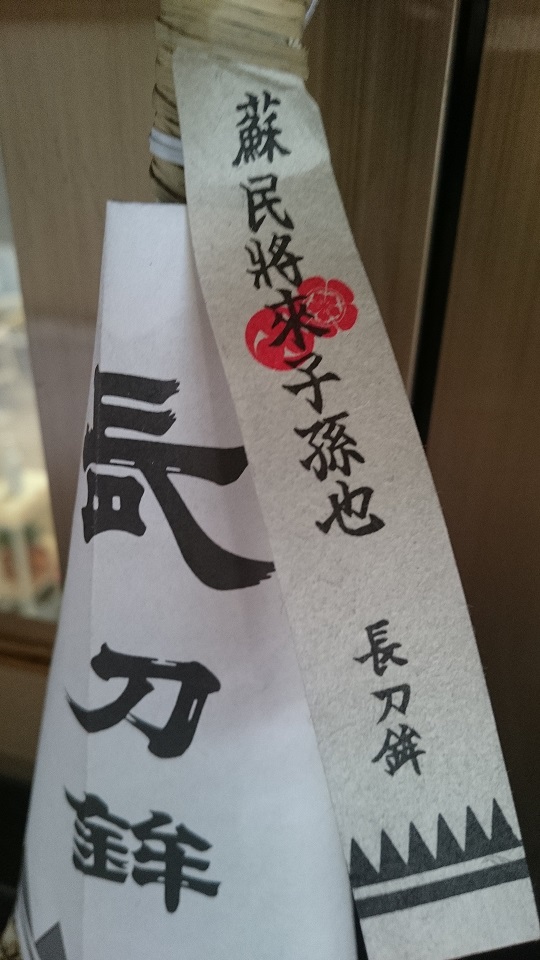 蘇民將來子孫也
長刀鉾
長刀鉾